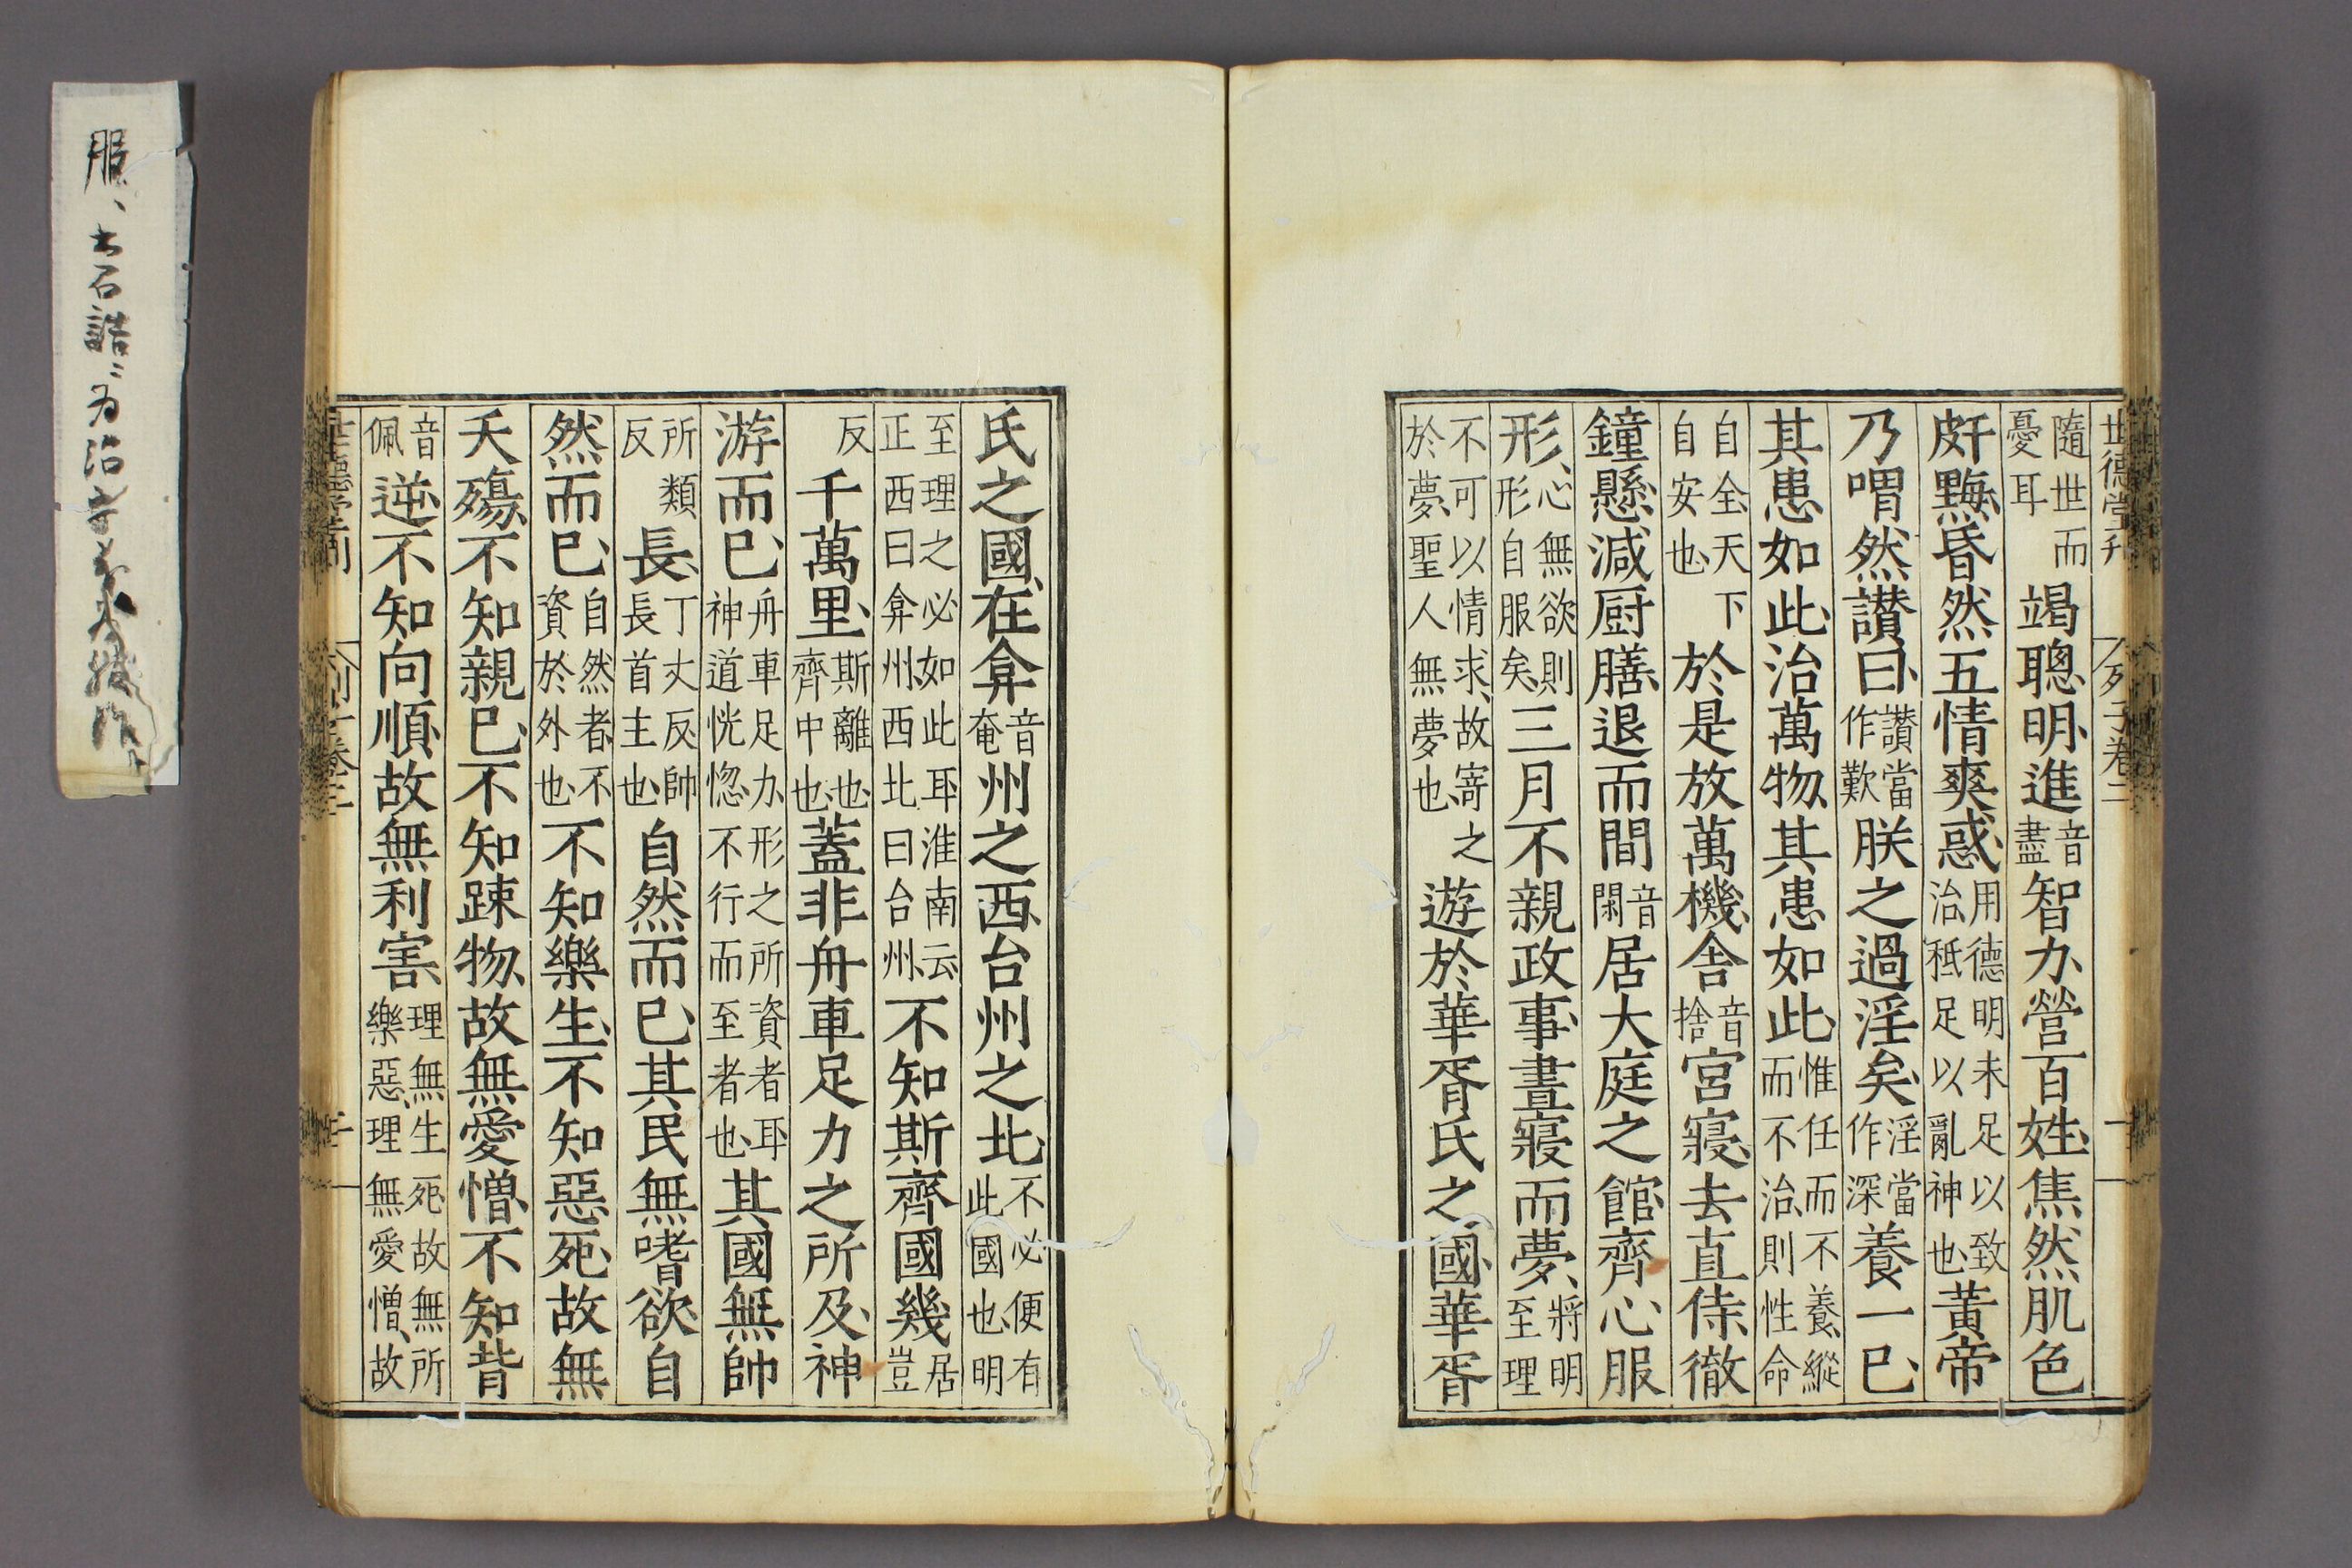 世德堂刋 列子卷二
隨世而憂耳竭聰明進音盡智力營百姓焦然肌色
皯黣昏然五情爽惑用德明未足以致治秪足以亂神也黃帝
乃喟然讃曰讃當作歎朕之過淫矣淫當作深養一己
其患如此治萬物其患如此惟任而不養縱而不治則性命
自全天下自安也於是放萬機舍音捨宮寢去直侍徹
鐘懸減厨膳退而間音閑居大庭之館齊心服
形心無欲則形自服矣三月不親政事晝寢而夢將明至理
不可以情求故寄之於夢聖人無夢也遊於華胥氏之國華胥
氏之國在弇音奄州之西台州之北不必便有此國也明
至理之必如此耳淮南云正西曰弇州西北曰台州不知斯齊國幾居豈
反千萬里斯離也齊中也蓋非舟車足力之所及神
游而已舟車足力形之所資者耳神道恍惚不行而至者也其國無帥
所類反長丁丈反帥長首主也自然而已其民無嗜欲自
然而已自然者不資於外也不知樂生不知惡死故無
夭殤不知親己不知踈物故無愛憎不知背
音佩逆不知向順故無利害理無生死故無所樂惡理無愛憎故